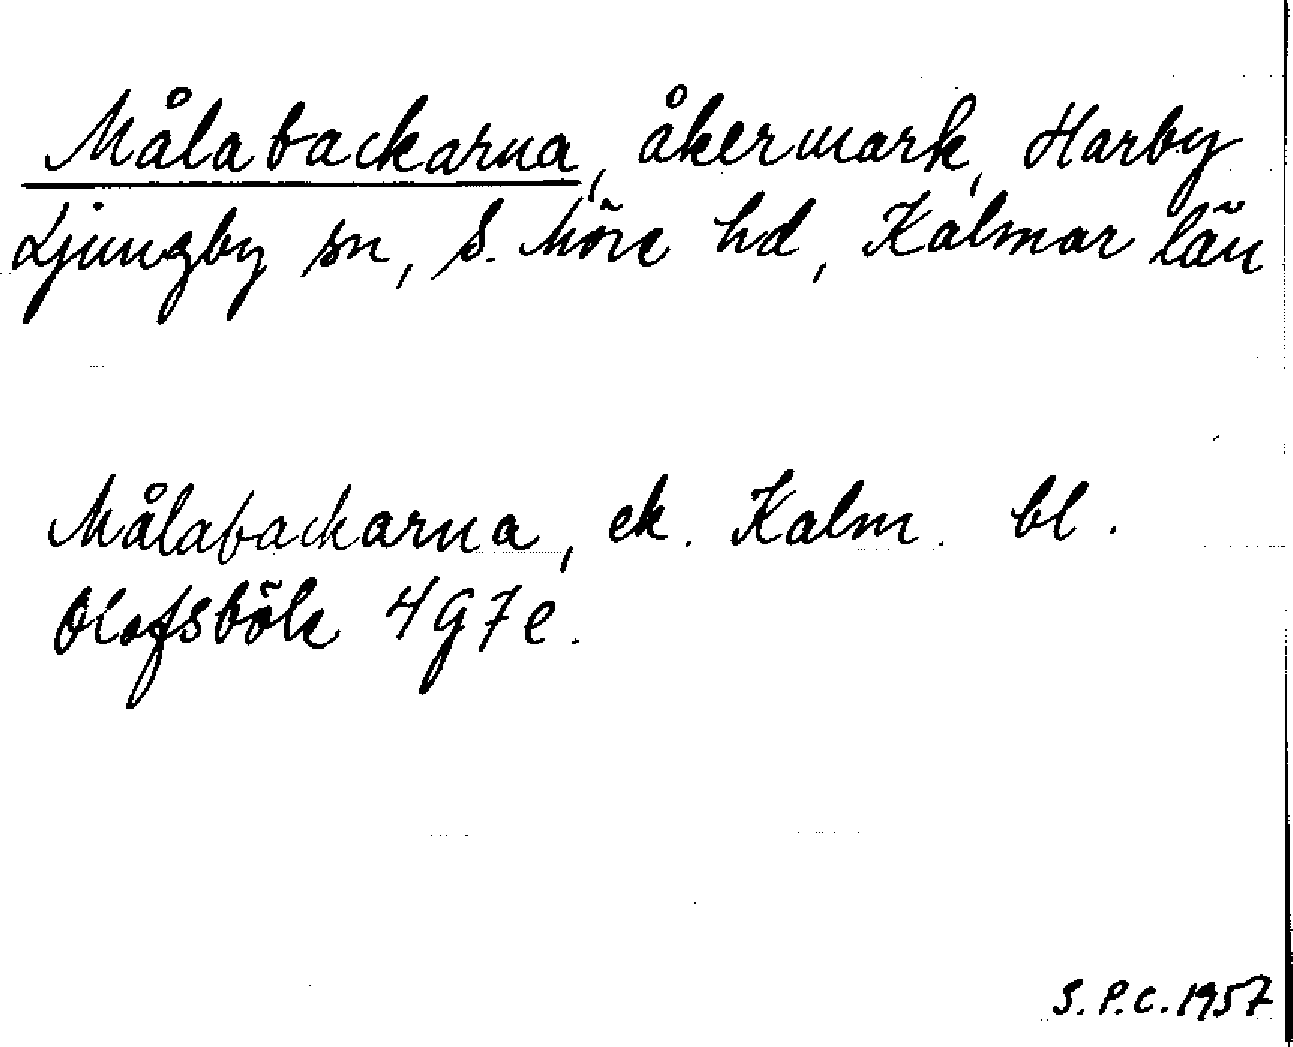 Målabackarna, åkermark, Harby
Ljungby sn, S. Möre hd, Kalmar län
Målabackarna, ek. Kalm. bl.
Olofsböle 4g7e.
S.P.C. 1957